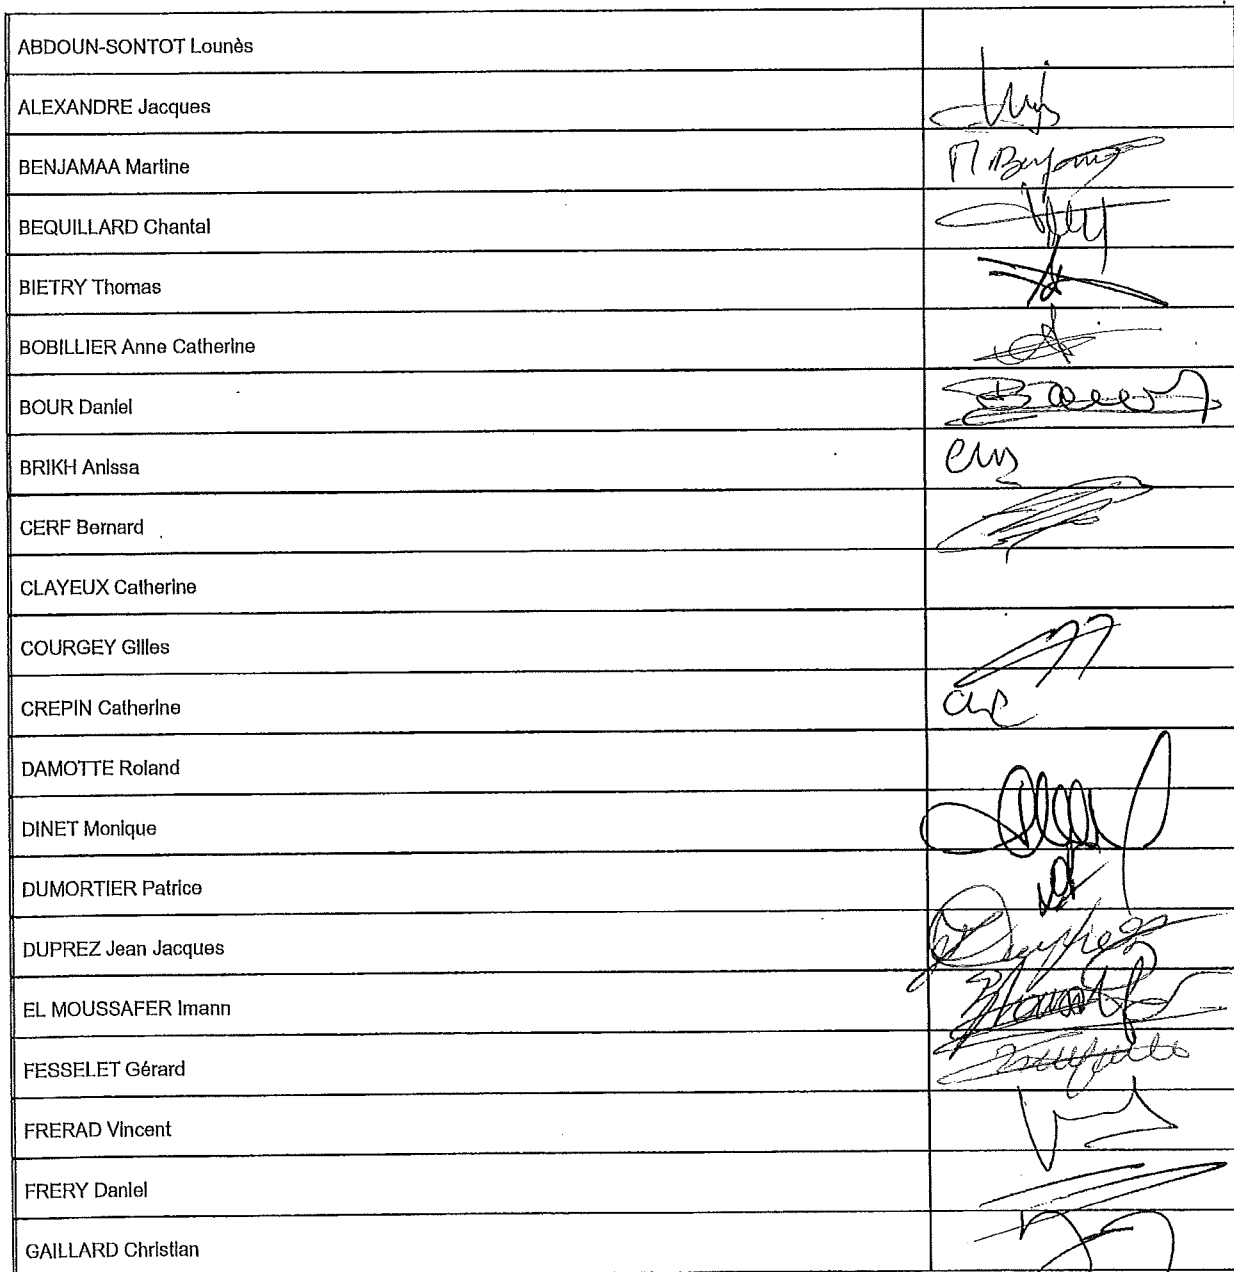 ABDOUN-SONTOT Lounès
ALEXANDRE Jacques
BENJAMAA Martine
BEQUILLARD Chantal
BIETRY Thomas
BOBILLIER Anne Catherine
BOUR Daniel
BRIKH Anissa
CERF Bernard
CLAYEUX Catherine
COURGEY Gilles
CREPIN Catherine
DAMOTTE Roland
DINET Monique
DUMORTIER Patrice
DUPREZ Jean Jacques
EL MOUSSAFER Imann
FESSELET Gérard
FRERAD Vincent
FRERY Daniel
GAILLARD Christian